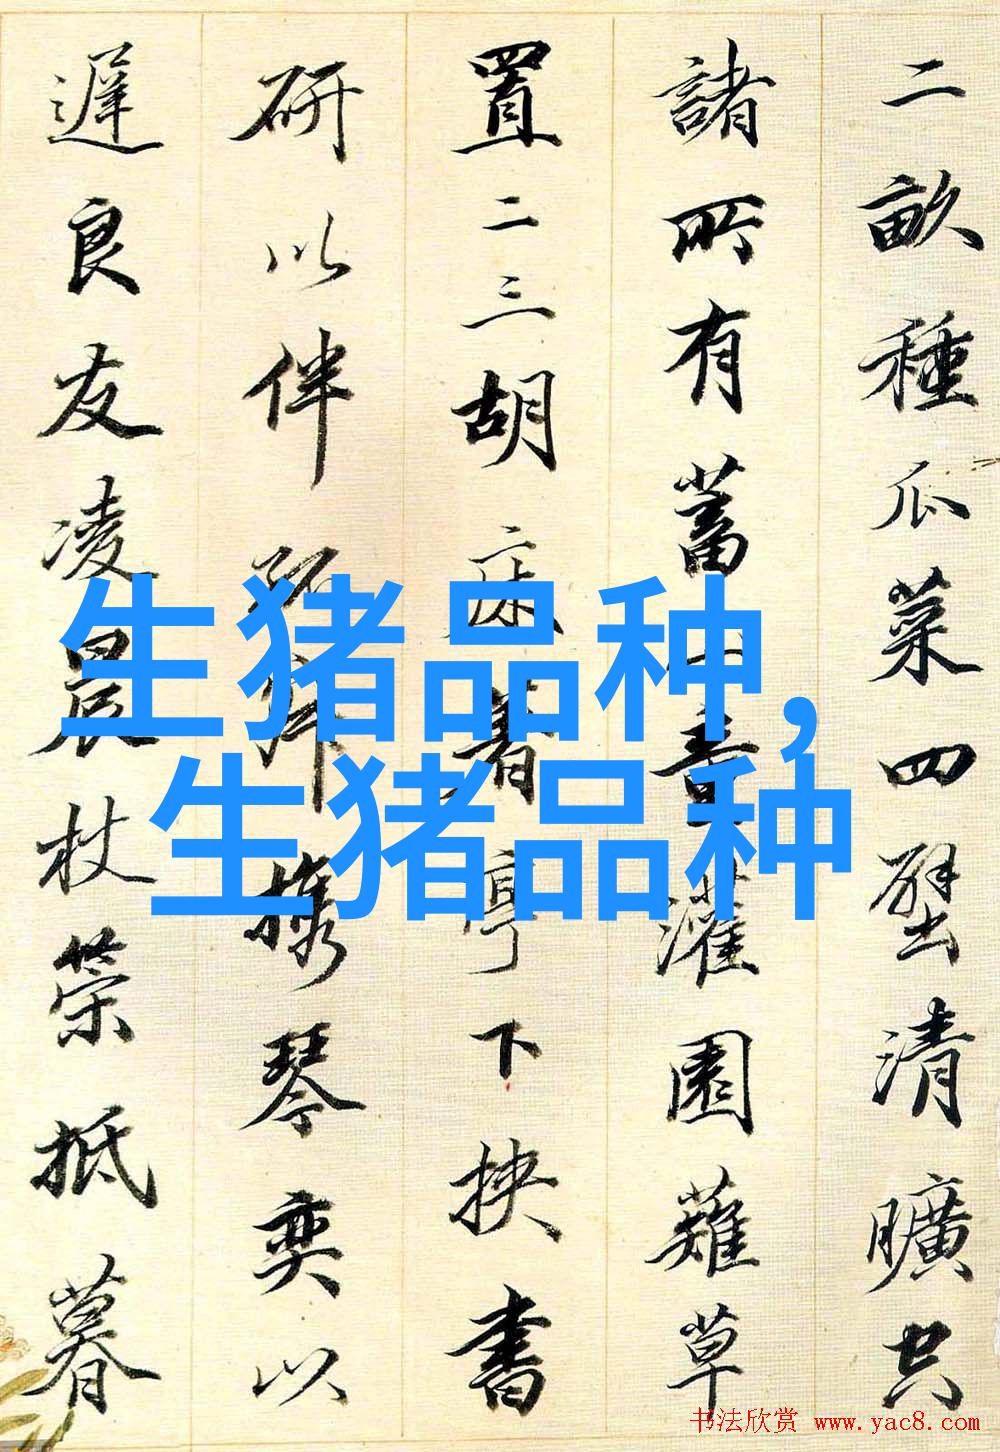 二畝種瓜菜四壁清曠空
諸所有蓄一童灌園薙草
置二三胡床著亭下挾書
研以伴孤攜琴奕以
遲良友凌晨杖策抵暮
生猪品种,
生猪品种
书法欣赏 www.yac8.com